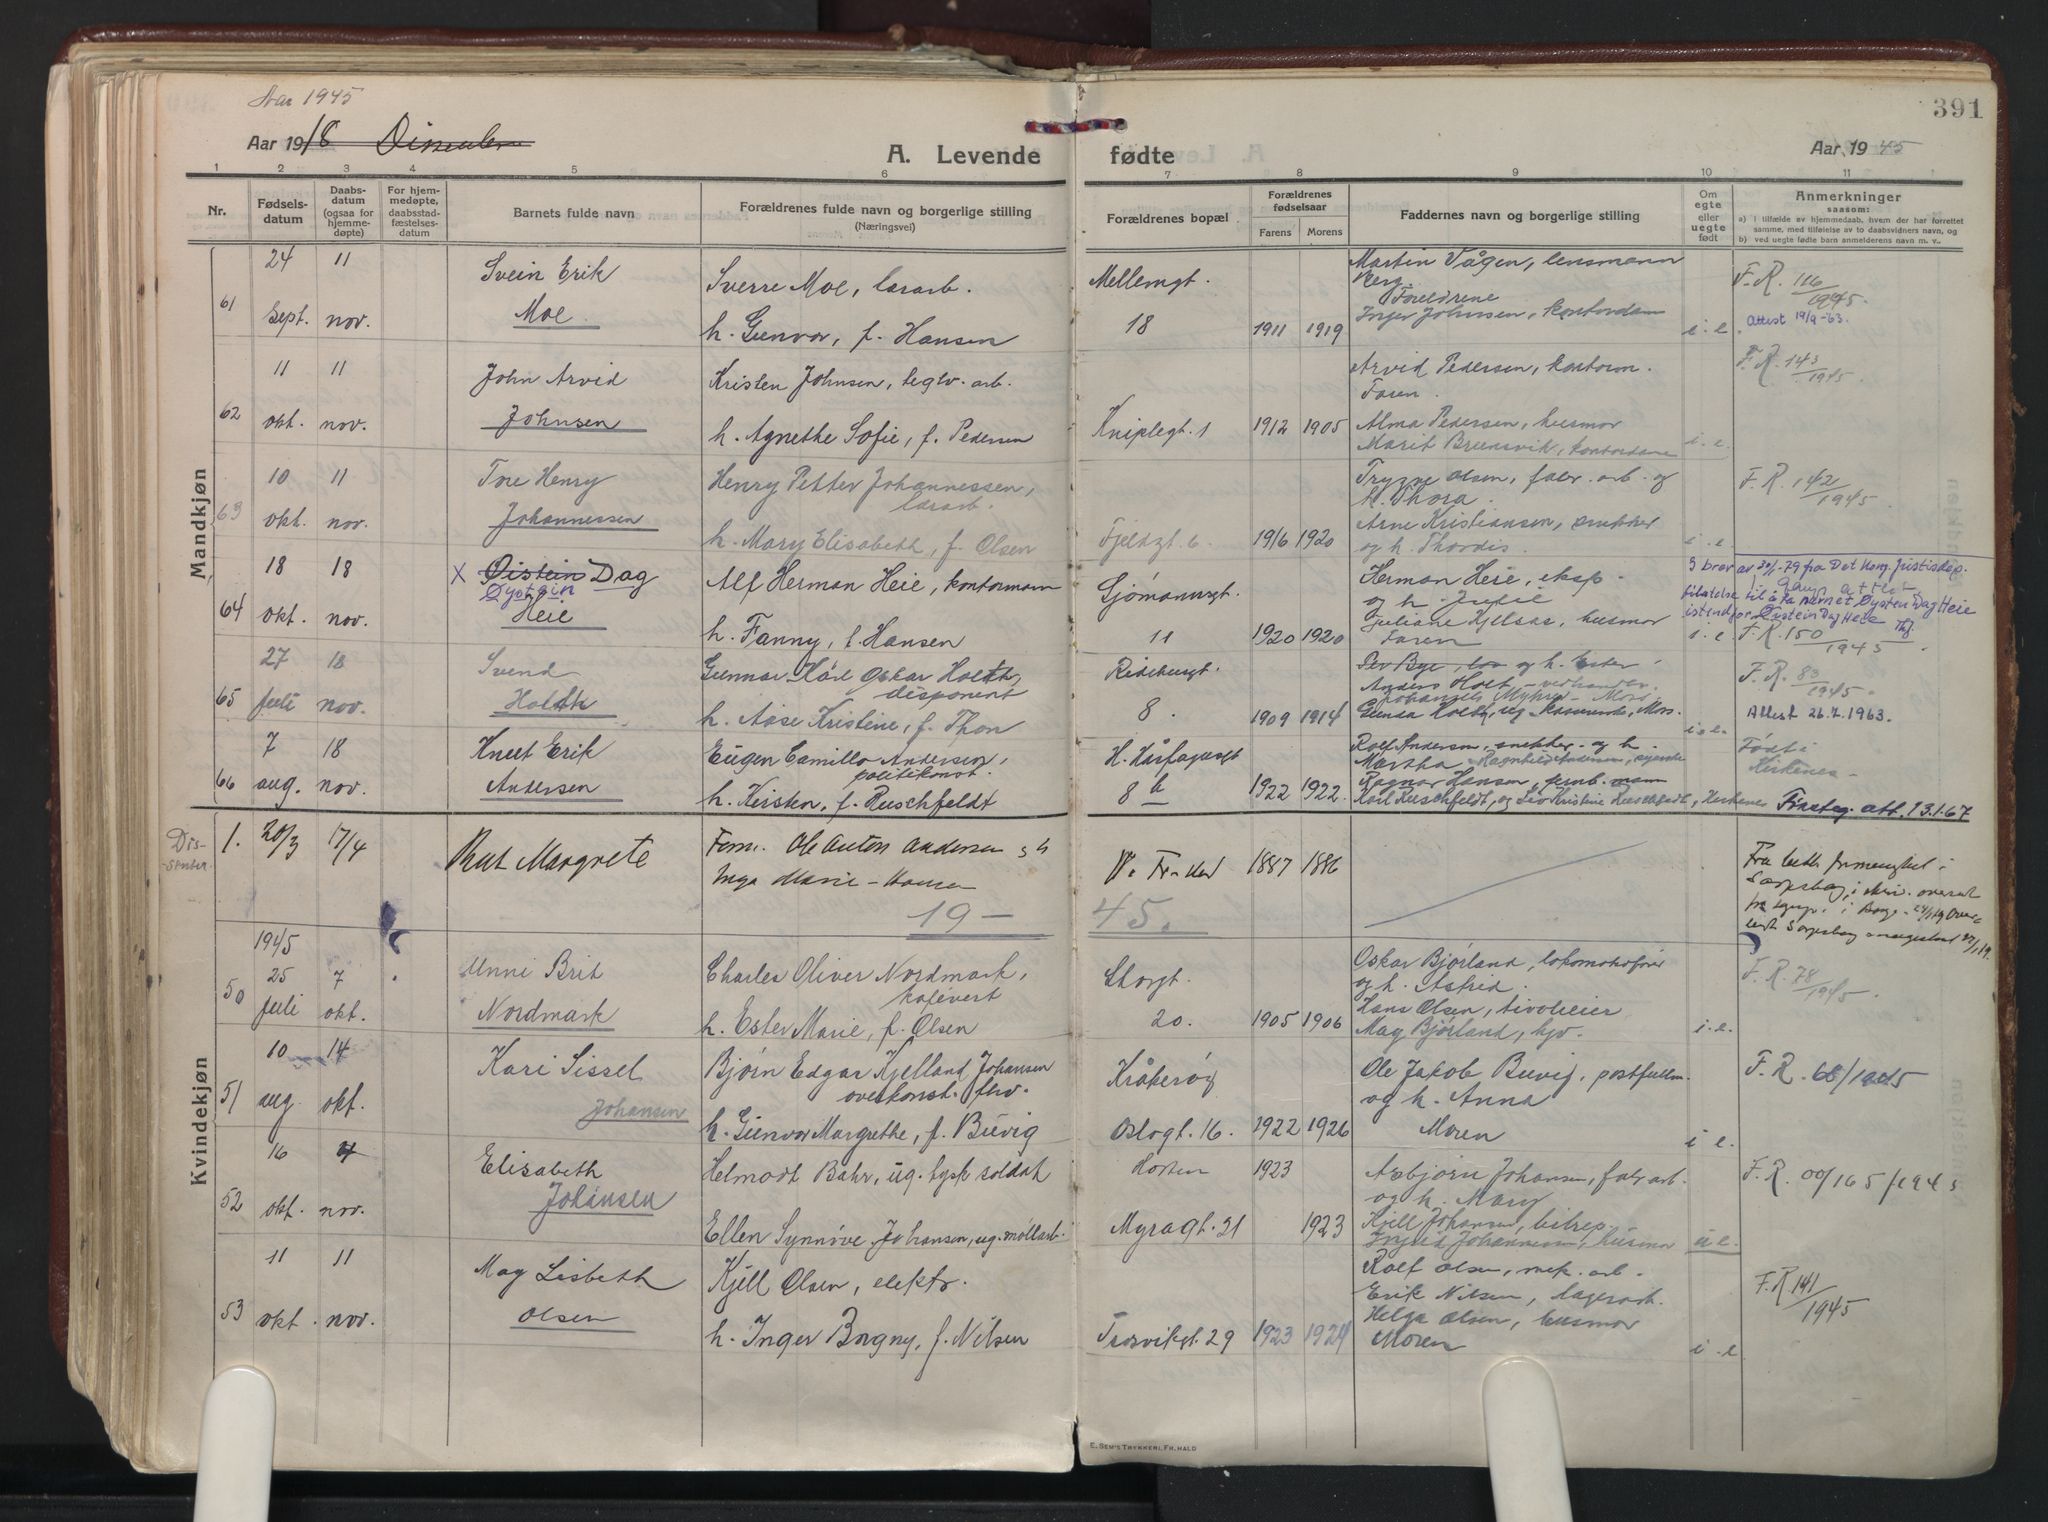 391
Aar 1945
Aar 1918 Dissentere
A. Levende fødte
Aar 1945
1 2 3 4 5 6 7 8 9 10 11
Nr.
Fødsels-
datum
Daabs-
datum
(ogsaa for
hjemme-
døpte)
For hjem-
medøpte,
daabsstad-
fæstelses-
datum
Barnets fulde navn
Forældrenes fulde navn og borgerlige stilling
(Næringsvei)
Forældrenes bopæl
Forældrenes
fødselsaar
Farens Morens
Faddernes navn og borgerlige stilling
Om
egte
eller
uegte
født
Anmerkninger
saasom:
a) i tilfælde av hjemmedaab, hvem der har forrettet
samme, med tilføielse av to daabsvidners navn, og
b) ved uegte fødte barn anmelderens navn m. v..
Mandkjøn
61
24 Sept.
11 nov.
Svein Erik
Moe
Sverre Moe, lærarb.
h. Gunvor, f. Hansen
Mellemgt.
18
1911 1919
Martin Vågen, lensmann
Berg
Foreldrene
Inger Johnsen, kontordam
i. e.
F. R. 116/1945.
Attest 19/9-63.
62
11 okt.
11 nov.
John Arvid
Johnsen
Kristen Johnsen, teglv. arb.
h. Agnethe Sofie, f. Pedersen
Kniplegt. 1
1912 1905
Arvid Pedersen, kontorm.
Faren.
Alma Pedersen, husmor
Marit Brunsvik, kontordame
i. e.
F. R. 143/1945.
63
10 okt.
11 nov.
Tore Henry
Johannessen
Henry Petter Johannessen,
lærarb.
h. Mary Elisabeth, f. Olsen
Fjeldgt. 6.
1916 1920
Trygve Olsen, fabr. arb. og
h. Thora.
Arne Kristiansen, snekker
og h. Thordis.
i. e.
F. R. 142/1945.
64
18 okt.
18 nov.
X Øistein Dag
Øystein
Heie
Alf Herman Heie, kontormann
h. Fanny, f. Hansen
Sjømannsgt.
11
1920 1920
Herman Heie, eksp.
og h.
Juliane Kjelsås, husmor
Faren
i. e.
I brev av 30/1-79 fra Det kong. Justisdep.
tillatelse til å ta navnet Øystein Dag Heie
istendfor Øistein Dag Heie
F. R. 150/1945.
65
27 juli
18 nov.
Svend
Holdth
Gunnar Karl Oskar Holdth,
disponent
h. Aase Kristine, f. Thon
Ridehusgt.
8.
1909 1914
Per Bye, og h. Ester.
Anders Holt
Myhre - Moss
i. e.
F. R. 83/1945.
Attest 26.7.1963.
66
7 aug.
18 nov.
Knut Erik
Andersen
Eugen Camillo Andersen,
politikonst.
h. Kirsten, f. Ruschfeldt
H. Hårfagresgt
8 b
1922 1922
Rolf Andersen, snekker og h.
Martha Ragnhild Andersen,
Ragnar Hansen, jernb.
Karl Ruschfeldt, og Liv Kristine Ruschfeldt, Kirkenes
Født i
Kirkenes-
Fireteg. att. 13.1.67
Dis-
senter
1. 20/3 17/4
Rut Margrete
Form. Ole Anton Andersen
Inga Marie
1887 1886
Fra
Sarpsborg,
19-45.
Kvindekjøn
1945
50
25 juli
7 okt.
Unni Brit
Nordmark
Charles Oliver Nordmark,
kafévert
h. Ester Marie, f. Olsen
Storgt.
20.
1905 1906
Oskar Bjørland, lokomotivfører
og h. Astrid.
Hans Olsen, tivolieier
May Bjørland, hjv.
i. e.
F. R. 78/1945.
51
10 aug.
14 okt.
Kari Sissel
Johansen
Bjørn Edgar Kjelland Johansen
overkonst.
h. Gunvor Margrethe, f. Buvig
Kråkerøy
Oslogt. 16.
1922 1926
Ole Jakob Buvig, postfullm.
og h. Anna
Moren
i. e.
F. R. 68/1945
52
16 okt.
4 nov.
Elisabeth
Johansen
Helmodt Bahr, ug. tysk soldat
Ellen Synnøve Johansen, ug. møllarb.
Horten
Myragt. 21
1923
1923
Asbjørn Johansen, fabr. arb.
og h. Mary
Kjell Johansen, bilrep.
Ingrid Johannessen, husmor
u e.
F. R. 00/165/1945
53
11 okt.
11 nov.
May Lisbeth
Olsen
Kjell Olsen, elektr.
h. Inger Borgny, f. Nilsen
Trosvikgt. 29
1923 1924
Rolf Olsen, mek. arb.
Erik Nilsen, lagerarb.
Helga Olsen, husmor
Moren
i. e.
F. R. 141/1945
E. Sem's Trykkeri, Fr.hald